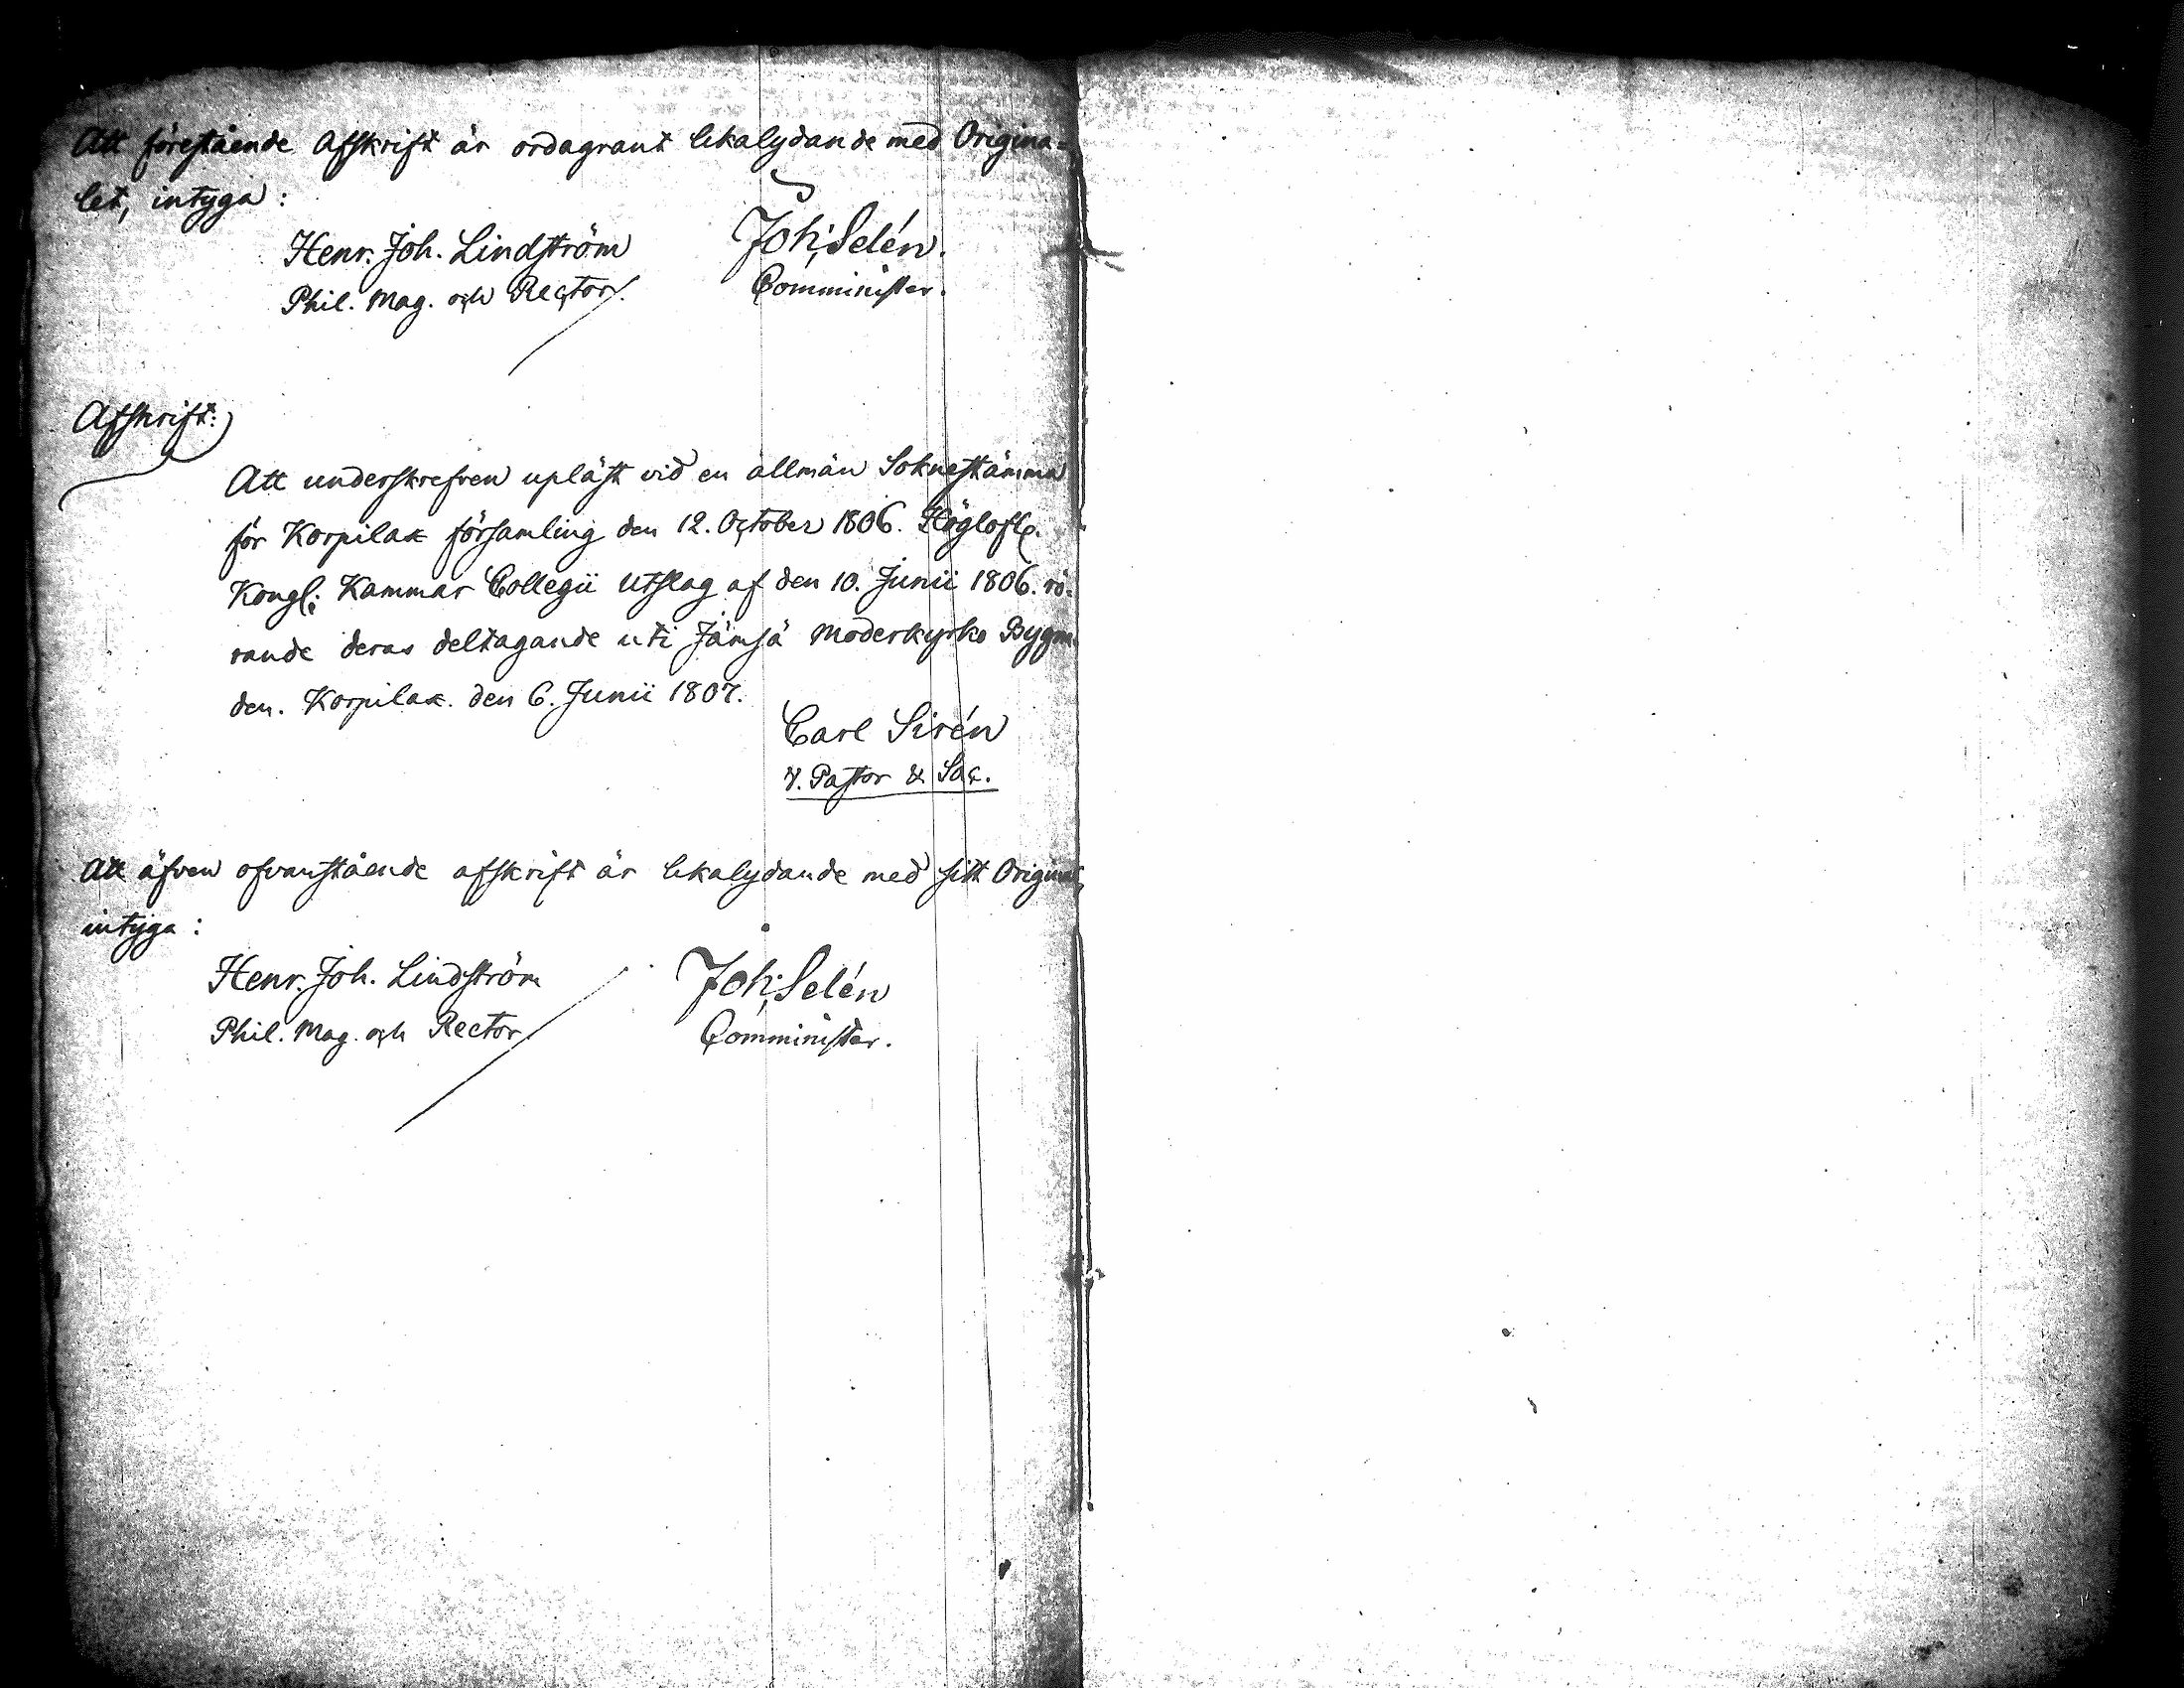 Att förestående Afskrift är ordagrant likalydande med Origina-
let, intyga:
Henr. Joh. Lindström Joh: Selén.
Phil. Mag. och Rector. Comminister.
Afskrift:
Att underskrefven upläst vid en allmän Soknestämma
för Korpilax församling den 12. October 1806. Höglofl.
Kongl: Kammar Collegii Utslag af den 10. Junii 1806. rö-
rande deras deltagande uti Jämsä Moderkyrko Bygna-
den. Korpilax. den 6. Junii 1807.
Carl Sirén
V. Pastor & Sac.
Att äfven ofvanstående afskrift är likalydande med sitt Original,
intyga:
Henr. Joh. Lindström Joh: Selén
Phil. Mag. och Rector. Comminister.